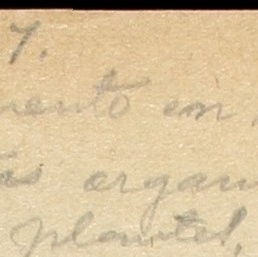 7.
mento en
as organi
plantel,